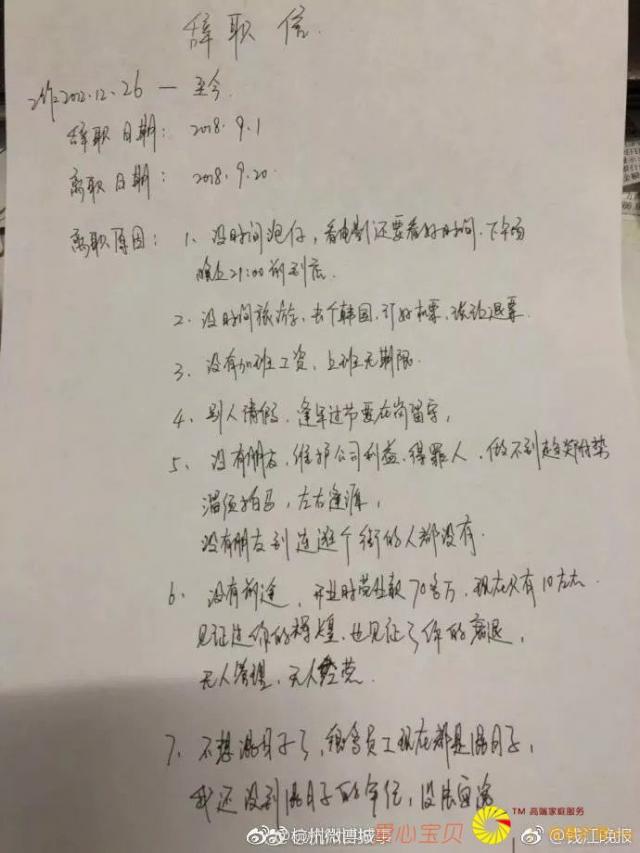 辞职信
工作:2012.12.26 — 至今
辞职日期: 2018.9.1
离职日期: 2018.9.20
离职原因: 1、没时间泡仔,看电影还要看好时间.下午场
晚上21:00前到店.
2、没时间旅游,去个韩国,订好机票,被迫退票
3、没有加班工资,上班无期限.
4、别人请假,逢年过节要在岗留守,
5、没有朋友,维护公司利益,得罪人,做不到趋炎附势
溜须拍马,左右逢源,
没有朋友到连逛个街的人都没有.
6、没有前途,开业时营业款70多万,现在只有10左右.
见证过你的辉煌,也见证了你的衰退,
无人管理,无人经营.
7、不想混日子了,很多员工现在都是混日子,
我还没到混日子的年纪,没法
杭州微博城事
心宝贝
TM 高端家庭服务
钱江晚报